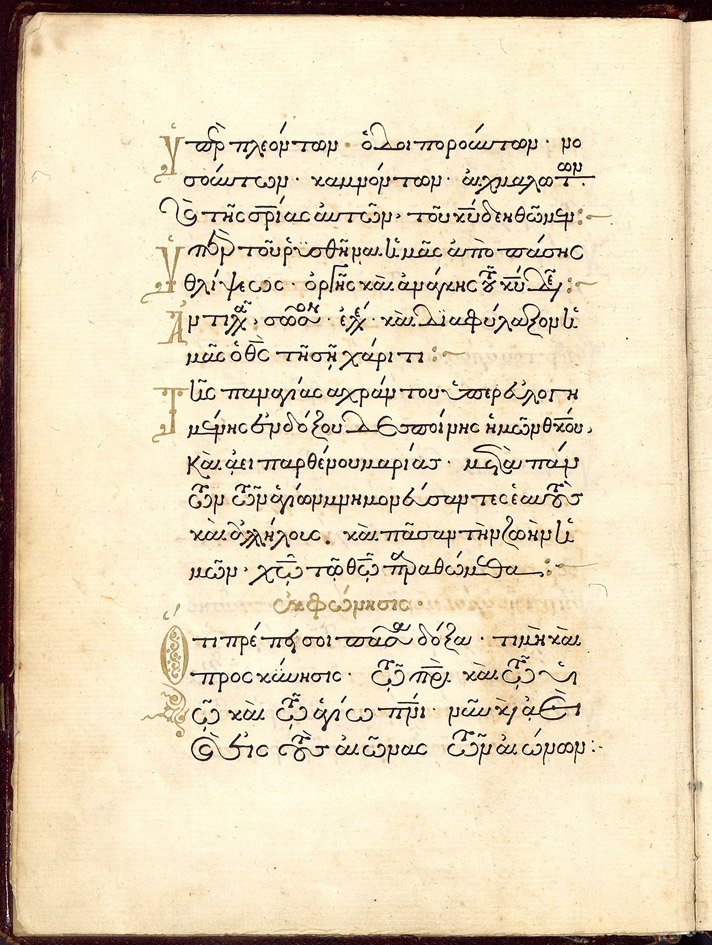 Ὑπὲρ πλεόντων· ὁδοιπορούντων· νο
σούντων· καμνόντων· αἰχμαλώτων·
καὶ τῆς σρίας αὐτῶν, τοῦ κυ δεηθῶμεν:
Ὑπὲρ τοῦ ῥυσθῆναι ἡμᾶς ἀπὸ πάσης
θλίψεως· ὀργῆς καὶ ἀνάγκης τοῦ κυ δεη:
Ἀντιλα, σῶσον· ἐλέη· καὶ διαφύλαξον ἡ
μᾶς ὁ θς τῆ σῆ χάριτι:
Τῆς παναγίας ἀχράντου ὑπερευλογη
μένης ἐνδόξου δεσποίνης ἡμῶν θκου,
καὶ ἀει παρθένου μαρίας· μετὰ πάν
των τῶν ἁγίων μνημονεύσαντες ἑαυτοὺς
καὶ ἀλλήλους. καὶ πᾶσαν τὴν ζωὴν ἡ
μῶν· χω τῶ θω παραθώμεθα:
ἐκφώνησις·
Ὅτι πρέπει σοι πᾶσα δόξα· τιμὴ καὶ
προσκύνησις· τῶ πρι καὶ τῶ υἱ
ῶ καὶ τῶ ἁγίω πνι· νῦν καὶ ἀεὶ
καὶ εἰς τοὺς αἰῶνας τῶν αἰώνων: